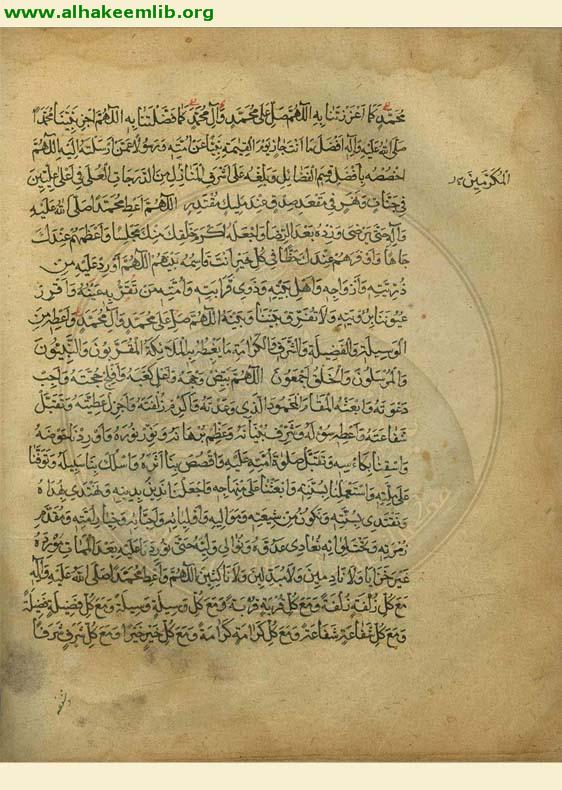 www.alhakeemlib.org
مُحَمَّدٍ كَمَا اَعْزَزْتَنَا بِهِ اَللّٰهُمَّ صَلِّ عَلىٰ مُحَمَّدٍ وَآلِ مُحَمَّدٍ كَمَا فَضَّلْتَنَا بِهِ اَللّٰهُمَّ اجْزِ نَبِيَّنَا مُحَمَّداً
صَلَّى اللهُ عَلَيْهِ وَآلِهِ اَفْضَلَ مَا اَنْتَ جَازٍ يَوْمَ الْقِيٰمَةِ نَبِيّاً عَنْ اُمَّتِهِ وَرَسُولاً عَمَّنْ اَرْسَلْتَهُ اِلَيْهِ اَللّٰهُمَّ
اخْصُصْهُ بِاَفْضَلِ قِسَمِ الْفَضَائِلِ وَبَلِّغْهُ عَلىٰ اَشْرَفِ الْمَنَازِلِ مِنَ الدَّرَجَاتِ الْعُلىٰ فِي اَعْلىٰ عِلِّيِّينَ
الْمُكَرَّمِينَ
فِي جَنَّاتٍ وَنَهَرٍ فِي مَقْعَدِ صِدْقٍ عِنْدَ مَلِيكٍ مُقْتَدِرٍ اَللّٰهُمَّ اَعْطِ مُحَمَّداً صَلَّى اللهُ عَلَيْهِ
وَآلِهِ حَتّىٰ يَرْضىٰ وَزِدْهُ بَعْدَ الرِّضَا وَاجْعَلْهُ اَكْرَمَ خَلْقِكَ مِنْكَ مَجْلِساً وَاَعْظَمَهُمْ عِنْدَكَ
جَاهاً وَاَوْفَرَهُمْ عِنْدَكَ حَظّاً فِي كُلِّ خَيْرٍ اَنْتَ قَاسِمُهُ بَيْنَهُمْ اَللّٰهُمَّ اَوْرِدْ عَلَيْهِ مِنْ
ذُرِّيَّتِهِ وَاَزْوَاجِهِ وَاَهْلِ بَيْتِهِ وَذَوِي قَرَابَتِهِ وَاُمَّتِهِ مَنْ تَقَرُّ بِهِ عَيْنُهُ وَاَقْرِرْ
عُيُونَنَا بِرُؤْيَتِهِ وَلَا تُفَرِّقْ بَيْنَنَا وَبَيْنَهُ اَللّٰهُمَّ صَلِّ عَلىٰ مُحَمَّدٍ وَآلِ مُحَمَّدٍ وَاَعْطِهِ مِنَ
الْوَسِيلَةِ وَالْفَضِيلَةِ وَالشَّرَفِ وَالْكَرَامَةِ مَا يَغْبِطُهُ بِهِ الْمَلَائِكَةُ الْمُقَرَّبُونَ وَالنَّبِيُّونَ
وَالْمُرْسَلُونَ وَالْخَلْقُ اَجْمَعُونَ اَللّٰهُمَّ بَيِّضْ وَجْهَهُ وَاَعْلِ كَعْبَهُ وَاَفْلِجْ حُجَّتَهُ وَاَجِبْ
دَعْوَتَهُ وَابْعَثْهُ الْمَقَامَ الْمَحْمُودَ الَّذِي وَعَدْتَهُ وَاَكْرِمْ زُلْفَتَهُ وَاَجْزِلْ عَطِيَّتَهُ وَتَقَبَّلْ
شَفَاعَتَهُ وَاَعْطِهِ سُؤْلَهُ وَشَرِّفْ بُنْيَانَهُ وَعَظِّمْ بُرْهَانَهُ وَنَوِّرْ نُورَهُ وَاَوْرِدْنَا حَوْضَهُ
وَاسْقِنَا بِكَأْسِهِ وَتَقَبَّلْ صَلٰوةَ اُمَّتِهِ عَلَيْهِ وَاقْصُصْ بِنَا اَثَرَهُ وَاسْلُكْ بِنَا سَبِيلَهُ وَتَوَفَّنَا
عَلىٰ مِلَّتِهِ وَاسْتَعْمِلْنَا بِسُنَّتِهِ وَابْعَثْنَا عَلىٰ مِنْهَاجِهِ وَاجْعَلْنَا نَدِينُ بِدِينِهِ وَنَهْتَدِي بِهُدَاهُ
وَنَقْتَدِي بِسُنَّتِهِ وَنَكُونُ مِنْ شِيعَتِهِ وَمَوَالِيهِ وَاَوْلِيَائِهِ وَاَحِبَّائِهِ وَخِيَارِ اُمَّتِهِ وَمُقَدَّمِ
زُمْرَتِهِ وَتَحْتَ لِوَائِهِ نُعَادِي عَدُوَّهُ وَنُوَالِي وَلِيَّهُ حَتّىٰ تُورِدَنَا عَلَيْهِ بَعْدَ الْمَمَاتِ مَوْرِدَهُ
غَيْرَ خَزَايَا وَلَا نَادِمِينَ وَلَا مُبَدِّلِينَ وَلَا نَاكِثِينَ اَللّٰهُمَّ وَاَعْطِ مُحَمَّداً صَلَّى اللهُ عَلَيْهِ وَآلِهِ
مَعَ كُلِّ زُلْفَةٍ زُلْفَةً وَمَعَ كُلِّ قُرْبَةٍ قُرْبَةً وَمَعَ كُلِّ وَسِيلَةٍ وَسِيلَةً وَمَعَ كُلِّ فَضِيلَةٍ فَضِيلَةً
وَمَعَ كُلِّ شَفَاعَةٍ شَفَاعَةً وَمَعَ كُلِّ كَرَامَةٍ كَرَامَةً وَمَعَ كُلِّ خَيْرٍ خَيْراً وَمَعَ كُلِّ شَرَفٍ شَرَفاً